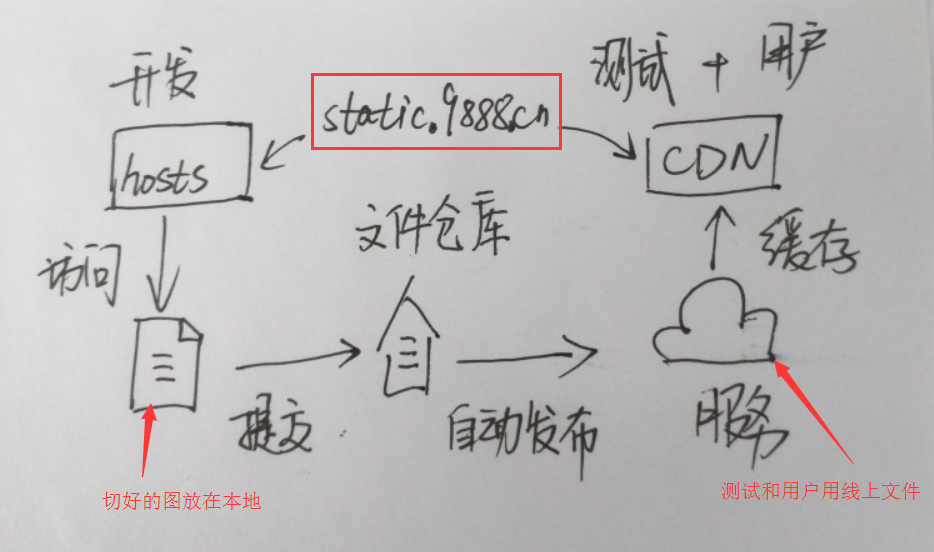 测试 + 用户
开发
static.9888.cn
hosts
CDN
文件仓库
访问
缓存
提交
自动发布
服务
切好的图放在本地
测试和用户用线上文件